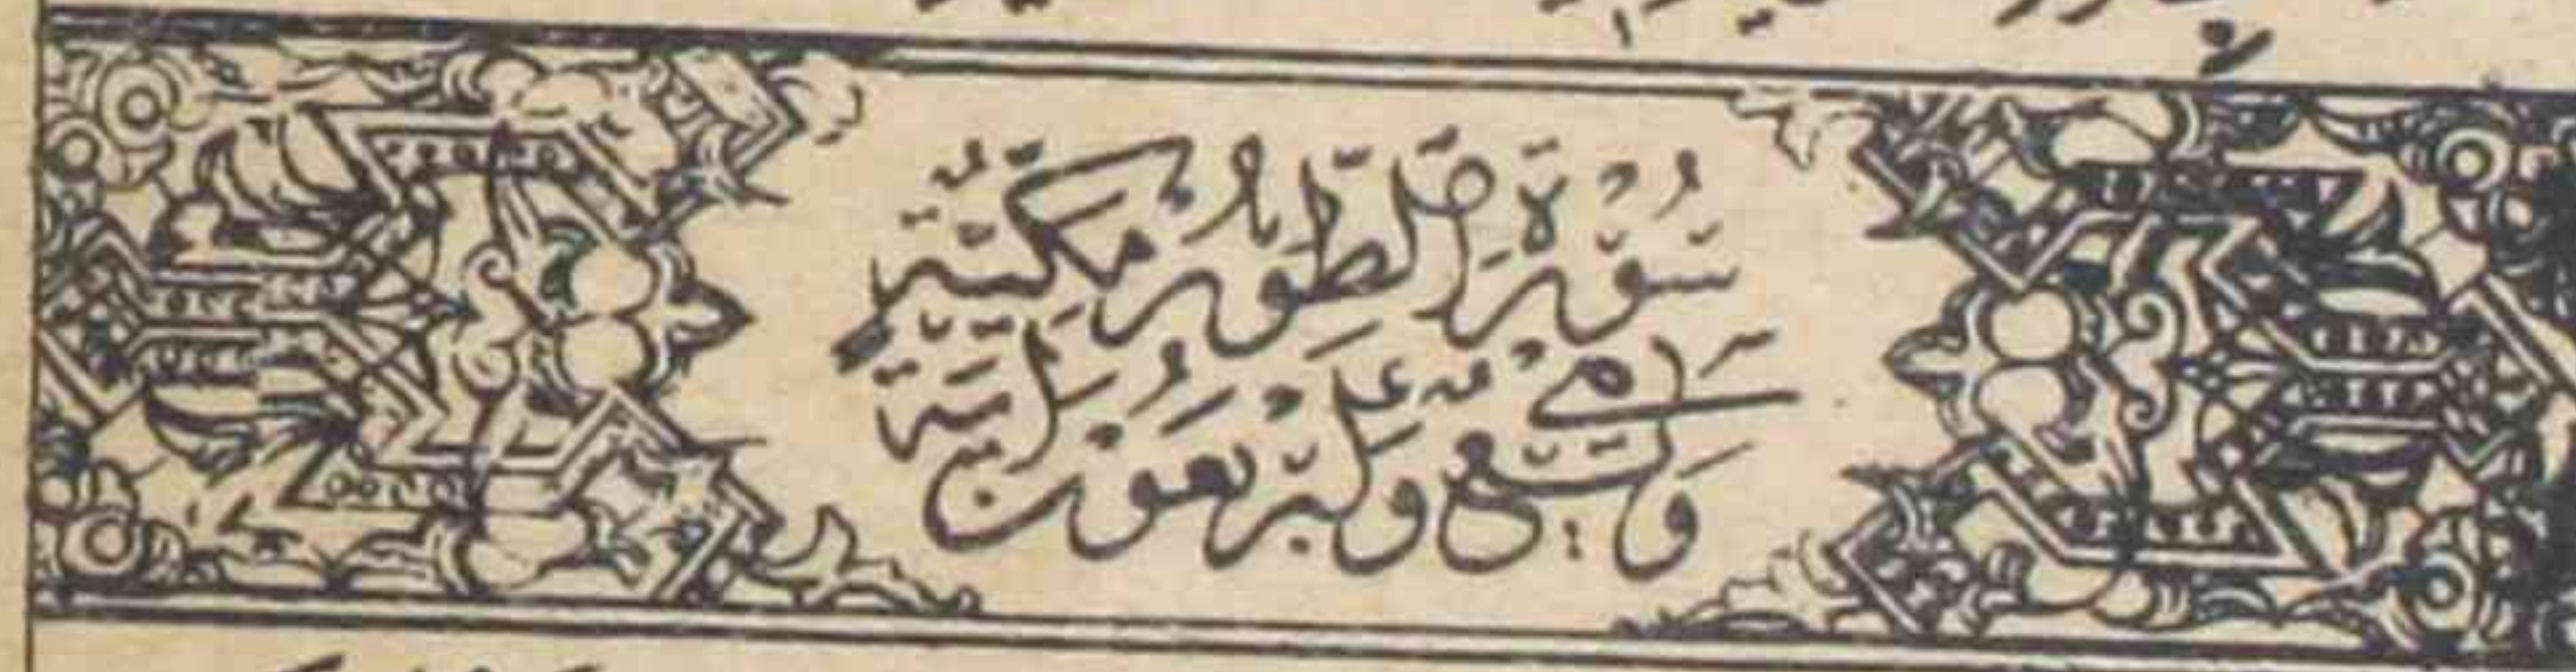 سُوْرَةُ الطُّوْرِ مَكِّيَّةٌ
وَهِيَ تِسْعٌ وَأَرْبَعُوْنَ آيَةً